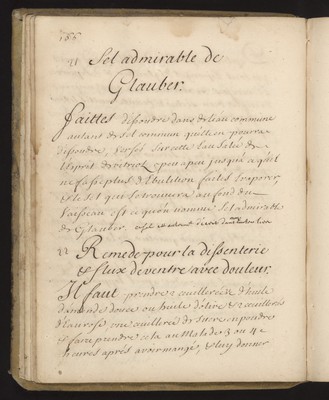 188
21 Sel admirable de
Glauber.
Faittes dissoudre dans de l'eau commune
autant de sel commun quelle en pourra
dissoudre, versés sur cette Eau salée de
l'esprit de vitriol a peu a peu jusqu'a ce quil
ne fasse plus d'Ebulition faites Evaporer,
& le sel qui se trouvera au fond du
vaisseau est ce qu'on nomme sel admirable
de Glauber.
22 Remede pour la dissenterie
& flux de ventre avec douleur.
Il faut prendre 2 cuillerées d'huile
d'amande douce ou huile d'olive & 2 cuillerées
d'Eau rose, une cuillerée de sucre en poudre
& faire prendre cela au Malade 3 ou 4
heures aprés avoir mangé, & luy donner